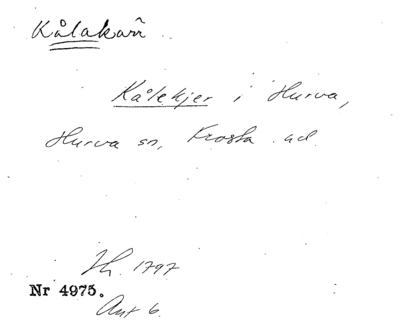 Kålakärr
Kålekjer i Hurva,
Hurva sn, Frosta hd.
1797
Nr 4975.
Akt 6.